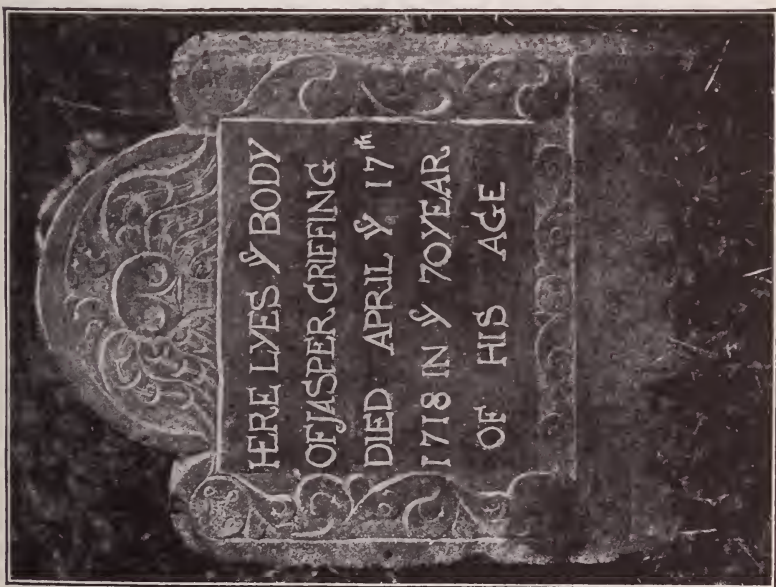 HERE LYES yͤ BODY
OF JASPER GRIFFING
DIED APRIL yͤ 17th
1718 IN yͤ 70 YEAR
OF HIS AGE